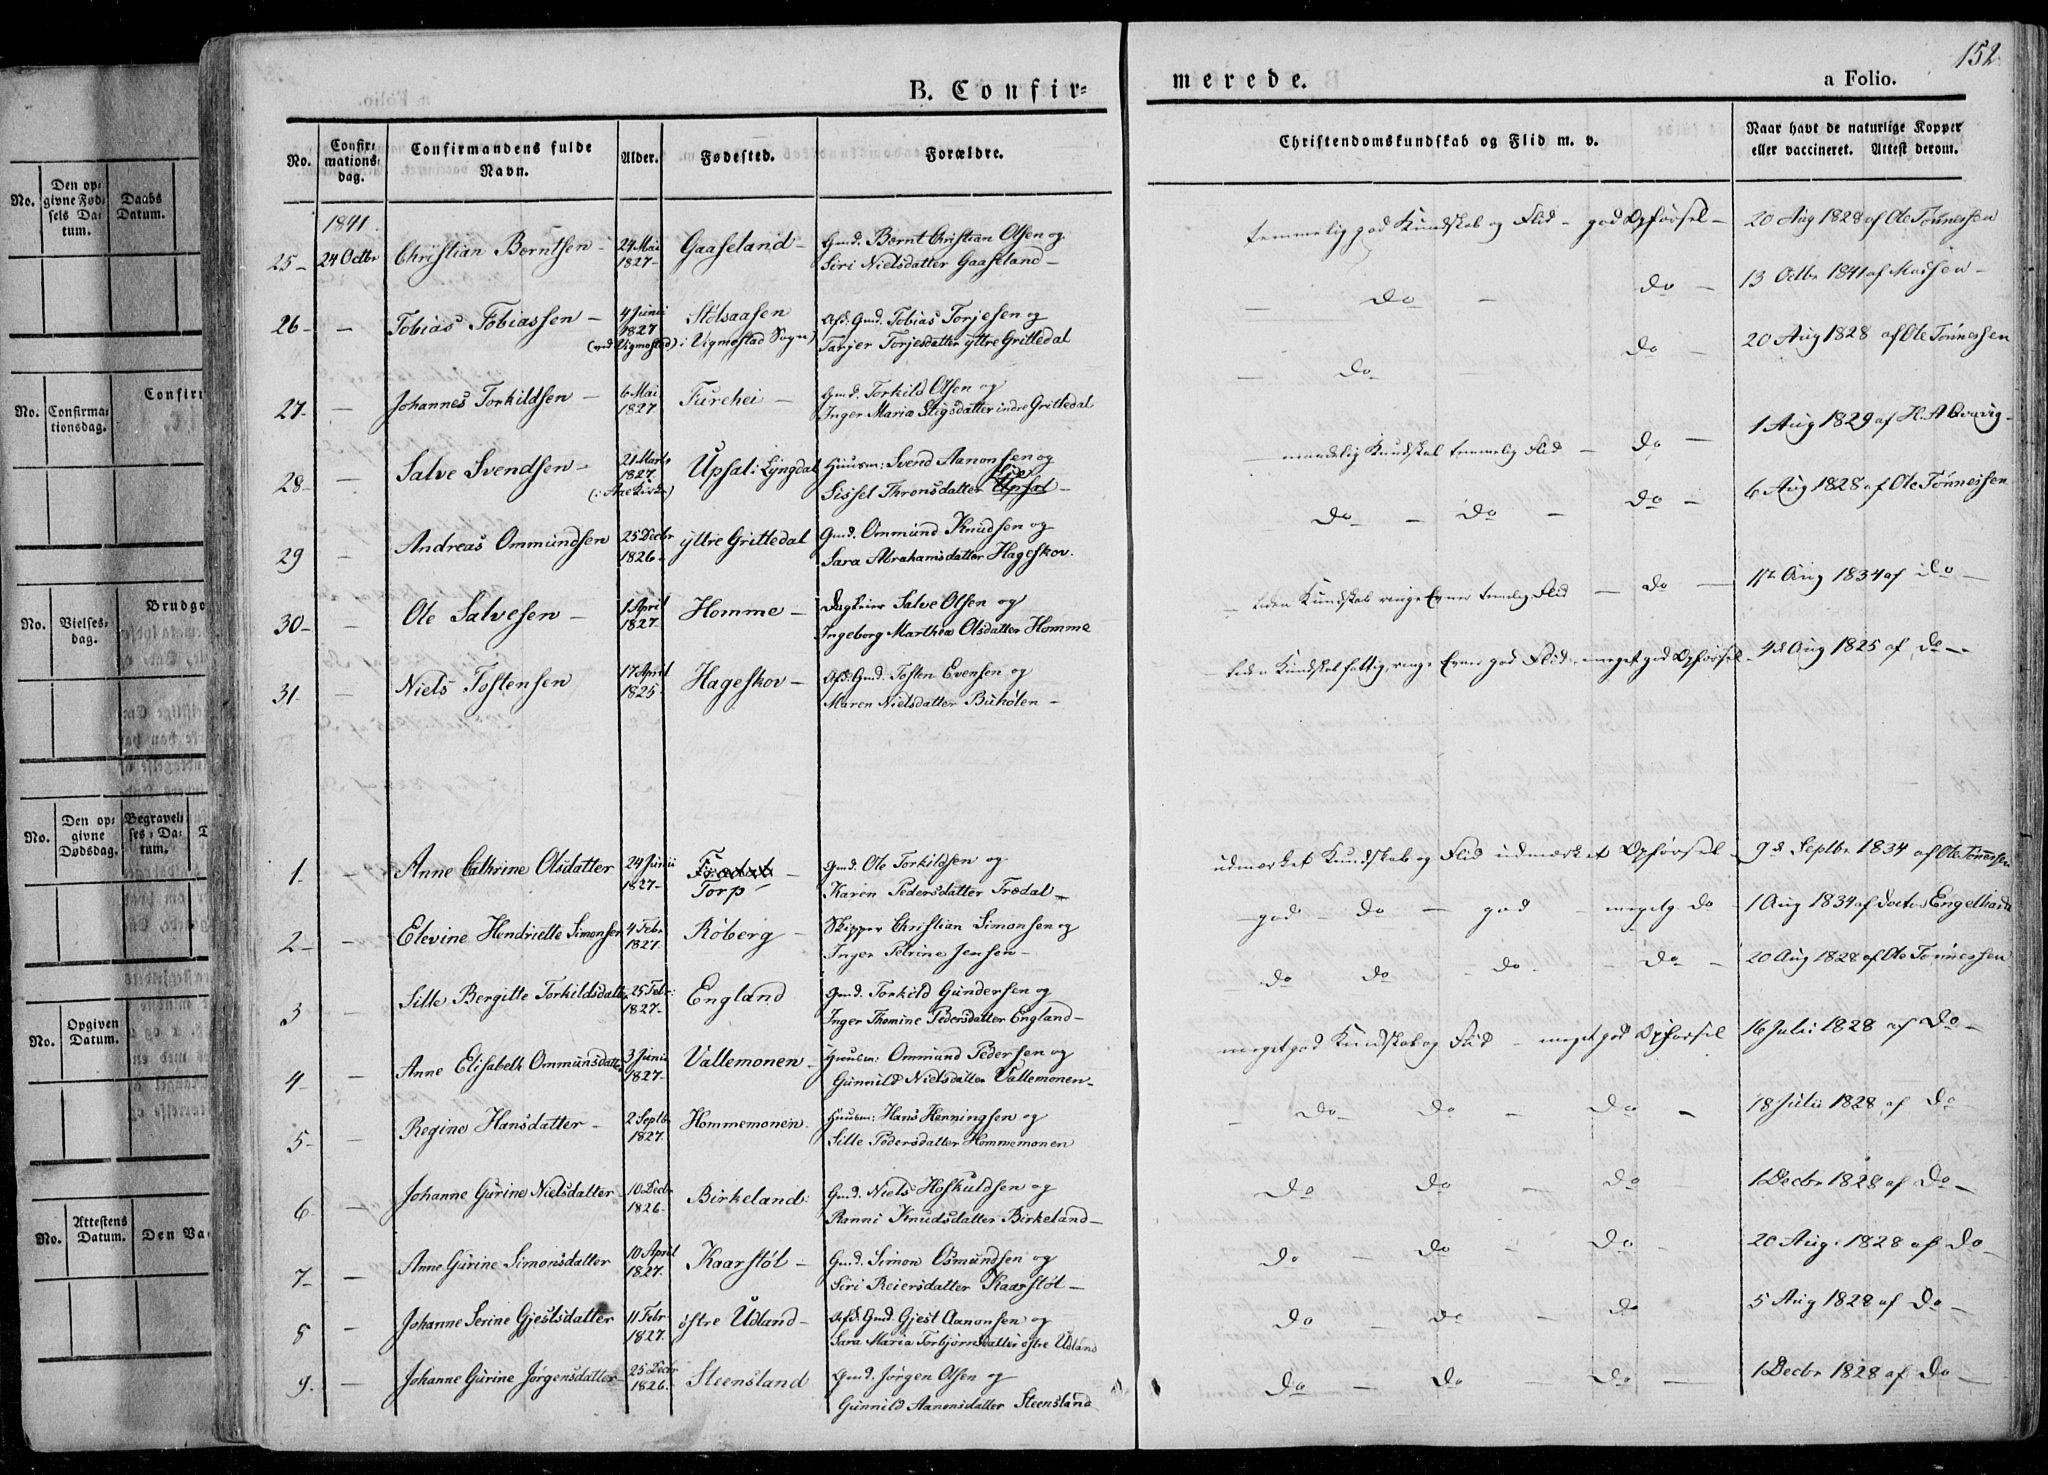 152
B. Confir=
merede.
a Folio.
No.
Confir=
mations=
dag.
Confirmandens fulde
Navn.
Alder.
Fødested.
Forældre.
Christendomskundskab og Flid m. v.
Naar havt de naturlige Kopper
eller vaccineret. Attest derom.
1841.
25 – 24 Octbr Christian Berntsen – 24 Mai 1827 – Gaaseland – Gmd. Bernt Christian Olsen og
Siri Nielsdatter Gaaseland –
temmelig god Kundskab og Flid – god Opførsel – 20 Aug 1828 af Ole Tønnessen
26 – – Tobias Tobiassen – 4 Junii 1827 Stølsaasen Afd. Gmd. Tobias Torjesen og
i Vigmostad Sogn Tarjer Torjesdatter yttre Grittedal
– Do – Do – 13 Octbr 1841 af
27 – – Johannes Torkildsen – 6 Mai 1827 Furehei – Gmd. Torkild Olsen og
Inger Maria Stigsdatter indre Grittedal
– Do – Do – 20 Aug 1828 af Ole Tønnessen
28 – – Salve Svendsen – 21 Marts 1827 Upsal i Lyngdal Huusm: Svend Aanonsen og
Sissel Thronsdatter
maadelig Kundskab temmelig Flid – Do – 1 Aug 1829 af H.
29 – Andreas Ommundsen 25 Decbr 1826 – yttre Grittedal Gmd. Ommund Knudsen og
Sara Abrahamsdatter Hageskov.
Do – Do – Do – 6 Aug 1828 af Ole Tønnessen
30 – – Ole Salvesen – 1 April 1827 Homme – Salve Olsen og
Ingeborg Marthea Olsdatter Homme
liden Kundskab ringe Evner temmelig Flid – Do – Aug 1834 af Do –
31 – – Niels Tostensen 17 April 1825 Hageskov – Afd. Gmd. Tosten Evensen og
Maren Nielsdatter
liden Kundskab ringe Evner god Flid – meget god Opførsel – Aug 1825 af Do –
1. – Anne Cathrine Olsdatter 24 Junii 1827 – Torp – Gmd. Ole Torkildsen og
Karen Pedersdatter Trædal –
udmærket Kundskab og Flid udmærket Opførsel – Septbr 1834 af Ole Tønnessen
2 – – Elevine Hendriette Simonsen 4 Febr 1827 Røberg – Skipper Christian Simonsen og
Inger Petrine Jensen –
– god – Do – god – meget g. Do 1 Aug 1834 af Doctor
3 – Sille Bergitte Torkildsdatter 25 Febr: 1827 – England Gmd. Torkild Gundersen og
Inger Thomine Pedersdatter England –
Do Do – Do – Do – 20 Aug 1828 af Ole Tønnessen
4 – – Anne Elisabeth Ommundsdatter 3 Junii 1827 – Vallemonen – Huusm: Ommund Pedersen og
Gunnild Nielsdatter Vallemonen –
meget god Kundskab og Flid – meget god Opførsel 16 Julii 1828 af Do –
5 – – Regine Hansdatter – 2 Septb. 1827 Hommemonen. Huusm: Hans Henningsen og
Sille Pedersdatter Hommemonen
– Do – Do – Do – 18 Julii 1828 af Do –
6 – – Johanne Gurine Nielsdatter 10 Decbr 1826 – Birkeland Gmd. Niels Hoskuldsen og
Ranni Knudsdatter Birkeland –
Do Do – Do – 1 Decbr 1828 af Do –
7 – – Anne Gurine Simonsdatter 10 April 1827. Kaarstøl – Gmd. Simon Osmundsen og
Siri Reiersdatter Kaarstøl –
Do – Do – Do – 20 Aug. 1828 af Do –
8 – Johanne Serine Gjestsdatter 11 Febr 1827 – østre Udland – Afd. Gmd. Gjest Aanonsen og
Sara Maria Torbjørnsdatter østre Udland
Do – do – do 5 Aug 1828 af Do –
9. – Johanne Gurine Jørgensdatter 25 Decbr 1826. Steensland Gmd. Jørgen Olsen og
Gunnild Aanonsdatter Steensland
Do – Do – Do – 1 Decbr 1828 af Do –
No.
Den op=
givne Fød=
sels Da=
tum.
Daabs
Datum.
No.
Confirma=
tionsdag.
No.
Vielses=
dag.
Brudgo
No.
Den op=
givne
Dødsdag.
Begravel=
ses=Da=
tum.
No.
Opgiven
Datum.
No.
Attestens
Datum.
Den Va